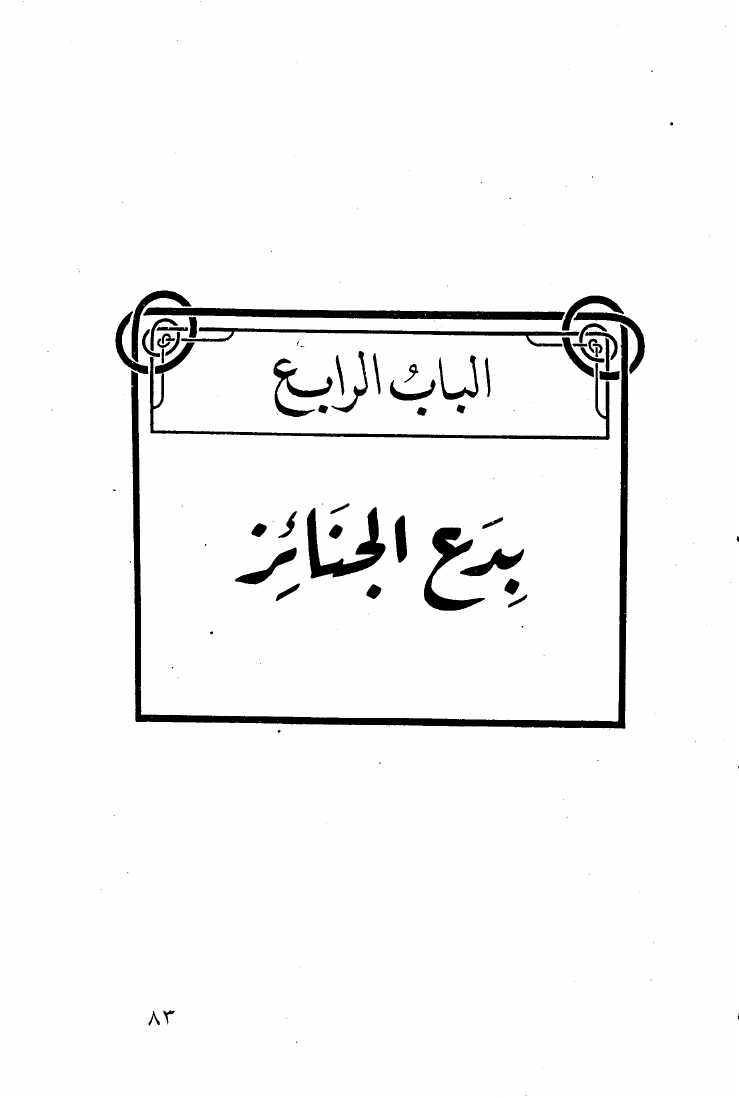 البابُ الرابع
بِدَع الجنَائِز
٨٣